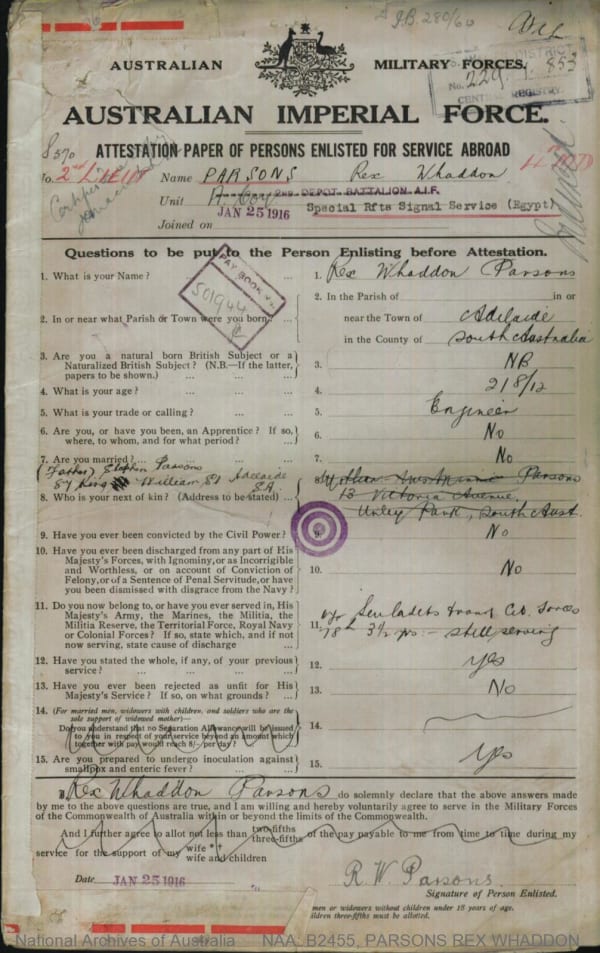 I.B. 280/60
AUSTRALIAN MILITARY FORCES.
DISTRICT
No. 229 . 1 . 853
REGISTRY
AUSTRALIAN IMPERIAL FORCE.
ATTESTATION PAPER OF PERSONS ENLISTED FOR SERVICE ABROAD
8570
No. Name PARSONS Rex Whaddon
Unit A Coy 2ND. DEPOT BATTALION A.I.F.
Special Rfts Signal Service (Egypt)
JAN 25 1916
Joined on
Questions to be put to the Person Enlisting before Attestation.
PAY BOOK
501944
1. What is your Name? ... ... 1. Rex Whaddon Parsons
2. In or near what Parish or Town were you born? ... 2. In the Parish of in or
near the Town of Adelaide
in the County of South Australia
3. Are you a natural born British Subject or a
Naturalized British Subject? (N.B.—If the latter,
papers to be shown.) ... ... 3. NB
4. What is your age? ... ... ... 4. 21 8/12
5. What is your trade or calling? ... ... 5. Engineer
6. Are you, or have you been, an Apprentice? If so,
where, to whom, and for what period? ... 6. No
7. Are you married? ... ... ... 7. No
(Father) Stephen Parsons
87 King William St Adelaide
S.A.
8. Who is your next of kin? (Address to be stated) ... 8. Mother Parsons
13 Victoria Avenue,
Unley Park, South Aust.
9. Have you ever been convicted by the Civil Power? ... 9. No
10. Have you ever been discharged from any part of His
Majesty's Forces, with Ignominy, or as Incorrigible
and Worthless, or on account of Conviction of
Felony, or of a Sentence of Penal Servitude, or have
you been dismissed with disgrace from the Navy? 10. No
11. Do you now belong to, or have you ever served in, His
Majesty's Army, the Marines, the Militia, the
Militia Reserve, the Territorial Force, Royal Navy
or Colonial Forces? If so, state which, and if not
now serving, state cause of discharge ... 11. Sen Cadets
78th 3½ yrs :- still serving
12. Have you stated the whole, if any, of your previous
service? ... ... ... 12. Yes
13. Have you ever been rejected as unfit for His
Majesty's Service? If so, on what grounds? ... 13. No
14. (For married men, widowers with children, and soldiers who are the
sole support of widowed mother)—
Do you understand that no Separation Allowance will be issued
to you in respect of your service beyond an amount which
together with pay would reach 8/- per day? ... 14.
15. Are you prepared to undergo inoculation against
smallpox and enteric fever? ... ... 15. Yes
I, Rex Whaddon Parsons do solemnly declare that the above answers made
by me to the above questions are true, and I am willing and hereby voluntarily agree to serve in the Military Forces
of the Commonwealth of Australia within or beyond the limits of the Commonwealth.
And I further agree to allot not less than two-fifths three-fifths of the pay payable to me from time to time during my
service for the support of my wife
wife and children
Date JAN 25 1916
R. W. Parsons
Signature of Person Enlisted.
men or widowers without children under 18 years of age.
ildren three-fifths must be allotted.
National Archives of Australia NAA: B2455, PARSONS REX WHADDON